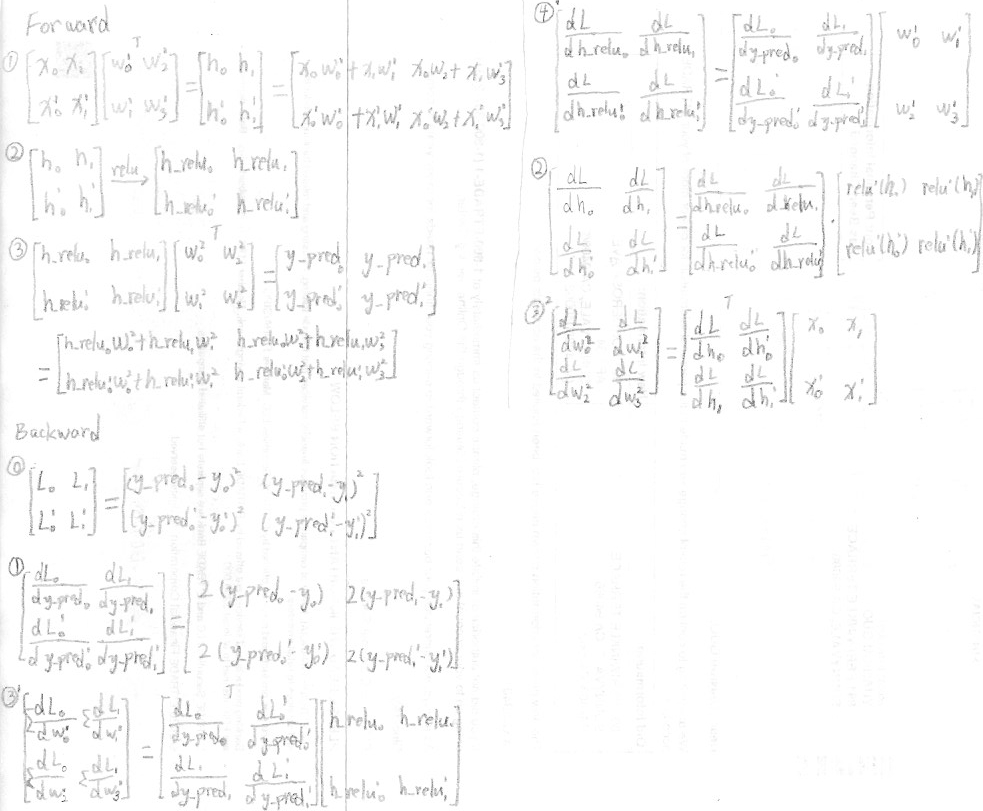 Forward
① [x₀ x₁; x₀' x₁'] [w₀¹ w₂¹; w₁¹ w₃¹]ᵀ = [h₀ h₁; h₀' h₁'] = [x₀w₀¹+x₁w₁¹ x₀w₂+x₁w₃¹; x₀'w₀¹+x₁'w₁¹ x₀'w₂+x₁'w₃¹]
② [h₀ h₁; h₀' h₁'] relu→ [h_relu₀ h_relu₁; h_relu₀' h_relu₁']
③ [h_relu₀ h_relu₁; h_relu₀' h_relu₁'] [w₀² w₂²; w₁² w₃²]ᵀ = [y_pred₀ y_pred₁; y_pred₀' y_pred₁']
= [h_relu₀w₀²+h_relu₁w₁² h_relu₀w₂²+h_relu₁w₃²; h_relu₀'w₀²+h_relu₁'w₁² h_relu₀'w₂²+h_relu₁'w₃²]
Backward
⓪ [L₀ L₁; L₀' L₁'] = [(y_pred₀-y₀)² (y_pred₁-y₁)²; (y_pred₀'-y₀')² (y_pred₁'-y₁')²]
① [dL₀/dy_pred₀ dL₁/dy_pred₁; dL₀'/dy_pred₀' dL₁'/dy_pred₁'] = [2(y_pred₀-y₀) 2(y_pred₁-y₁); 2(y_pred₀'-y₀') 2(y_pred₁'-y₁')]
③' [ΣdL₀/dw₀² ΣdL₁/dw₁²; ΣdL₀/dw₂ ΣdL₁/dw₃²] = [dL₀/dy_pred₀ dL₀'/dy_pred₀'; dL₁/dy_pred₁ dL₁'/dy_pred₁']ᵀ [h_relu₀ h_relu₁; h_relu₀' h_relu₁']
④' [dL/dh_relu₀ dL/dh_relu₁; dL/dh_relu₀' dL/dh_relu₁'] = [dL₀/dy_pred₀ dL₁/dy_pred₁; dL₀'/dy_pred₀' dL₁'/dy_pred₁'] [w₀² w₁²; w₂² w₃²]
② [dL/dh₀ dL/dh₁; dL/dh₀' dL/dh₁'] = [dL/dh_relu₀ dL/dh_relu₁; dL/dh_relu₀' dL/dh_relu₁'] · [relu'(h₀) relu'(h₁); relu'(h₀') relu'(h₁')]
③² [dL/dw₀² dL/dw₁²; dL/dw₂² dL/dw₃²] = [dL/dh₀ dL/dh₀'; dL/dh₁ dL/dh₁']ᵀ [x₀ x₁; x₀' x₁']